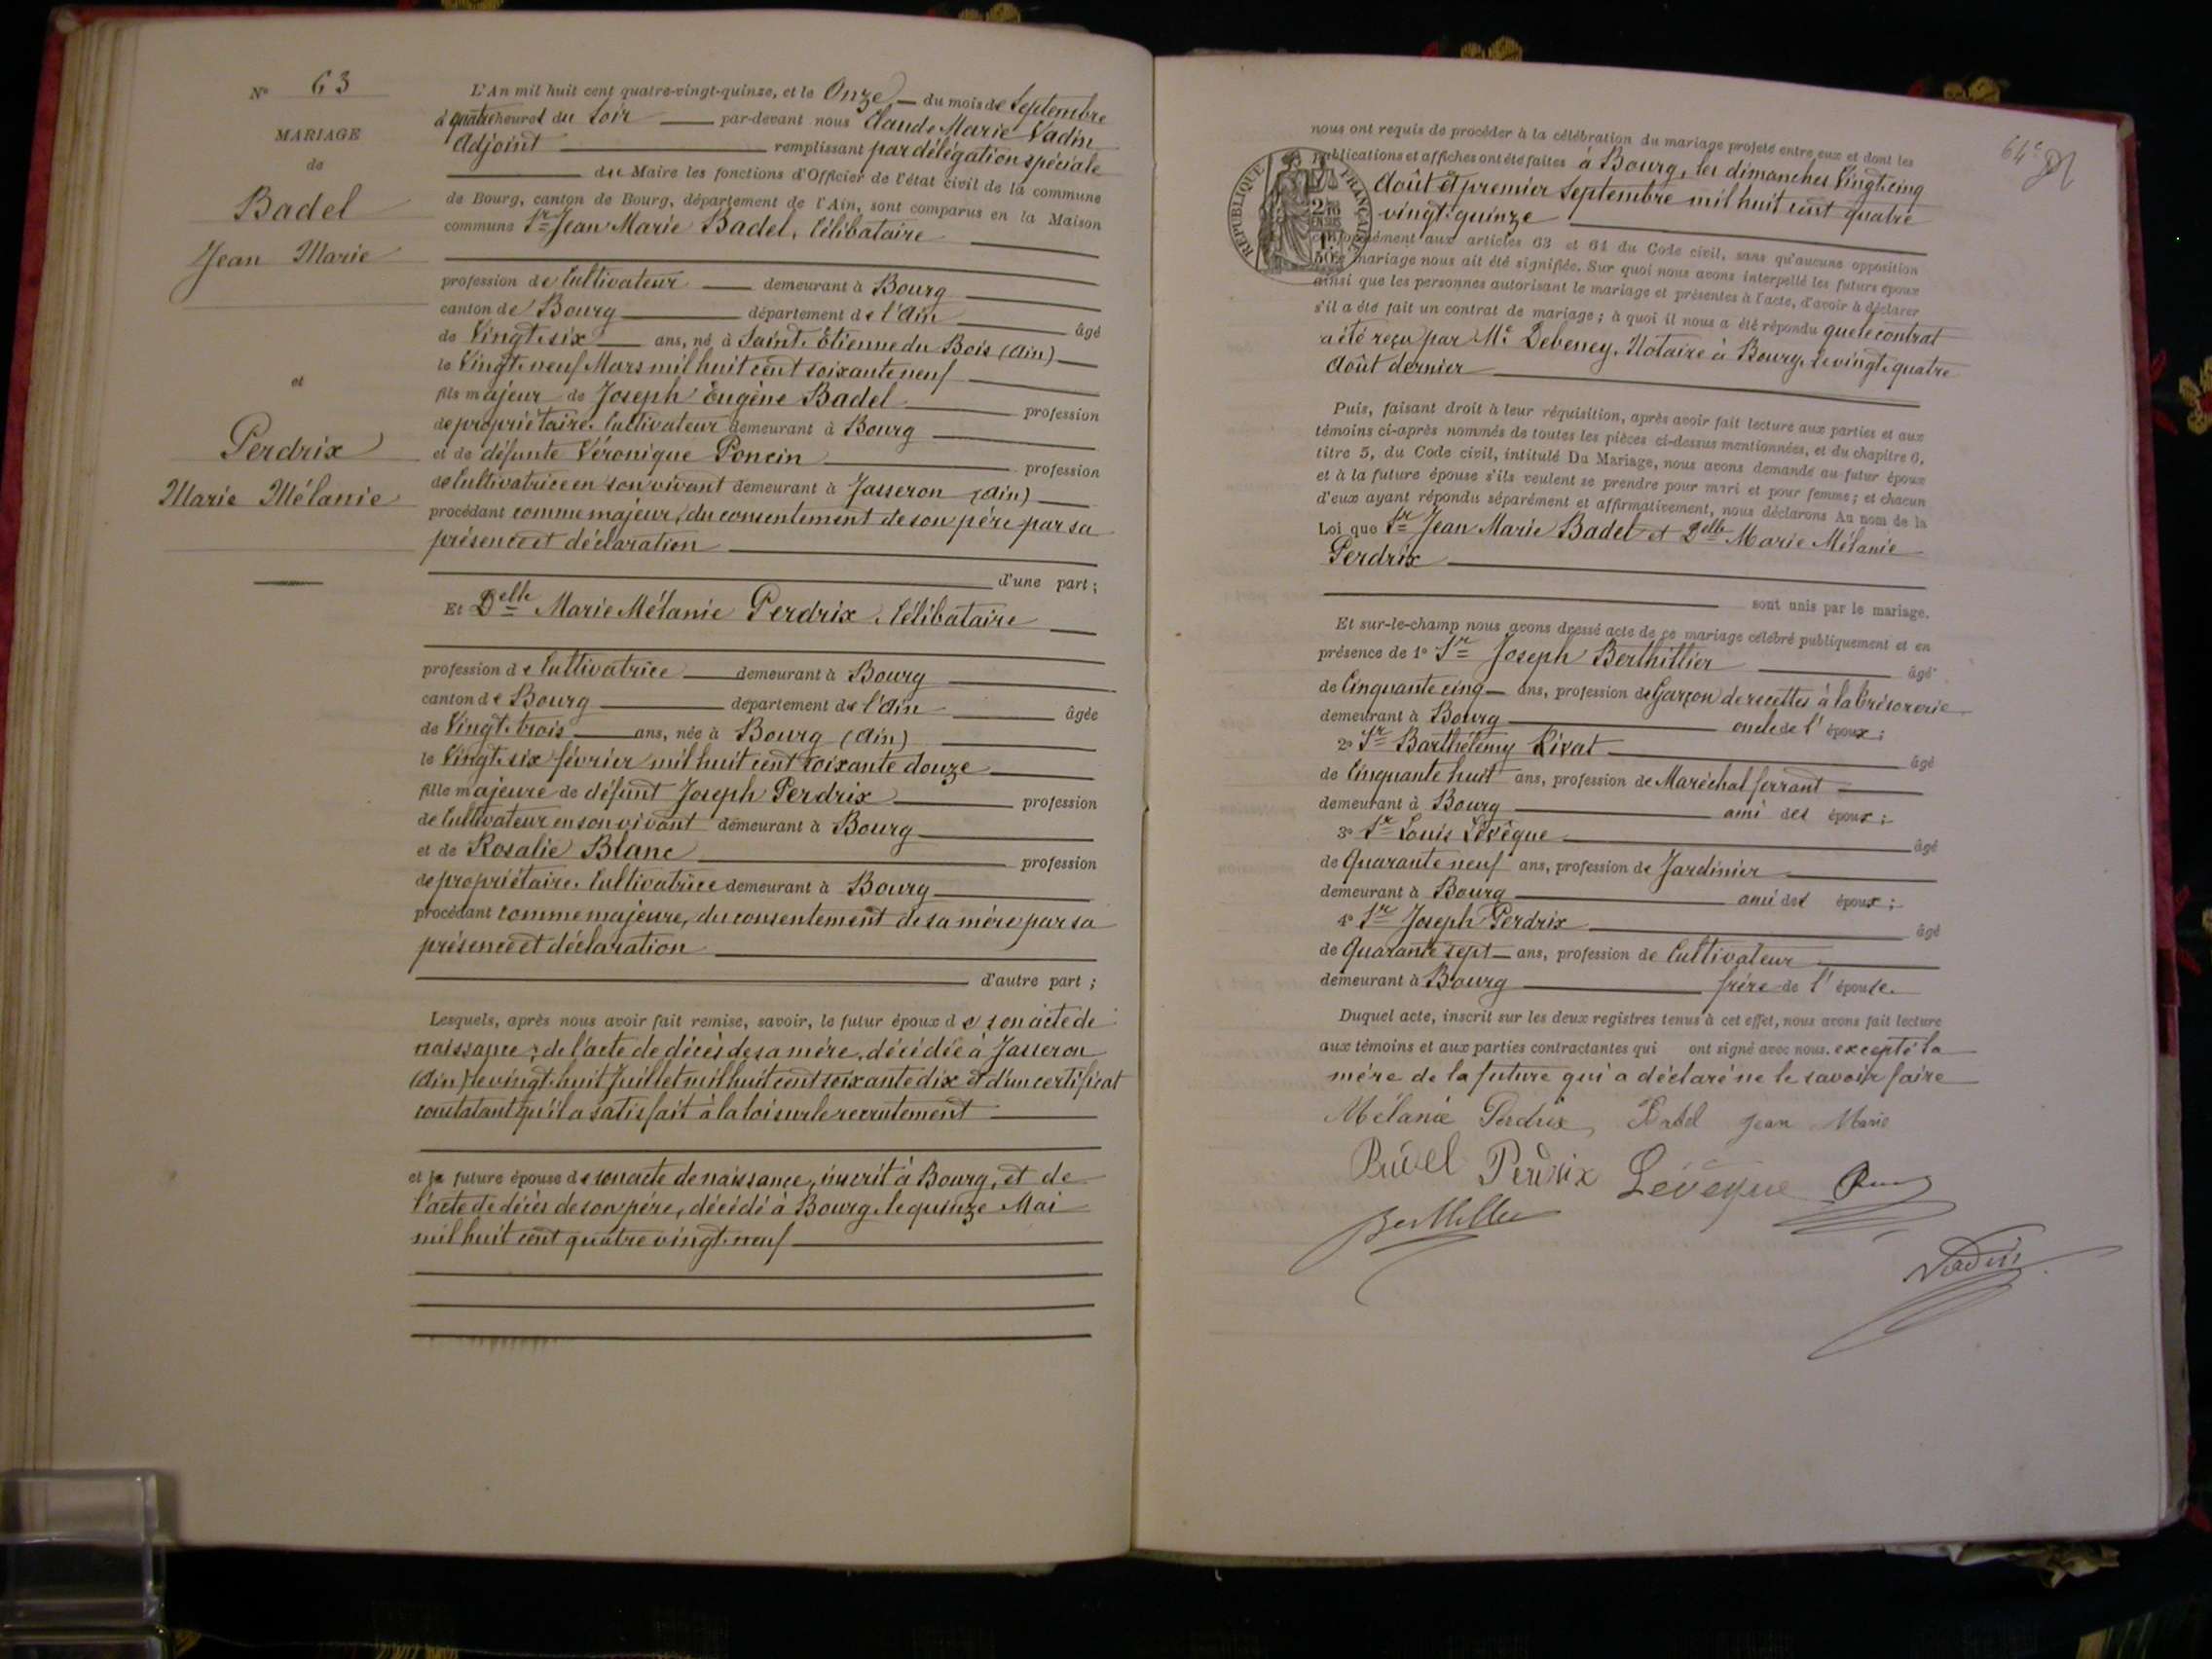 N° 63
MARIAGE
de
Badel
Jean Marie
et
Perdrix
Marie Mélanie
L'An mil huit cent quatre-vingt-quinze, et le Onze du mois de Septembre
à quatre heures du Soir par-devant nous Claude Marie Vadin
Adjoint remplissant par délégation spéciale
du Maire les fonctions d'Officier de l'état civil de la commune
de Bourg, canton de Bourg, département de l'Ain, sont comparus en la Maison
commune Sr Jean Marie Badel, Célibataire
profession de Cultivateur demeurant à Bourg
canton de Bourg département de l'Ain âgé
de Vingt-six ans, né à Saint-Etienne du Bois (Ain)
le Vingt-neuf Mars mil huit cent soixante neuf
fils majeur de Joseph Eugène Badel profession
de propriétaire-Cultivateur demeurant à Bourg
et de défunte Véronique Poncin profession
de Cultivatrice en son vivant demeurant à Jasseron (Ain)
procédant comme majeur, du consentement de son père par sa
présence et déclaration
d'une part ;
Et Delle Marie Mélanie Perdrix, Célibataire
profession de Cultivatrice demeurant à Bourg
canton de Bourg département de l'Ain âgée
de Vingt-trois ans, née à Bourg (Ain)
le Vingt-six février mil huit cent soixante douze
fille majeure de défunt Joseph Perdrix profession
de Cultivateur en son vivant demeurant à Bourg
et de Rosalie Blanc profession
de propriétaire-Cultivatrice demeurant à Bourg
procédant comme majeure, du consentement de sa mère par sa
présence et déclaration
d'autre part ;
Lesquels, après nous avoir fait remise, savoir, le futur époux de son acte de
naissance ; de l'acte de décès de sa mère, décédée à Jasseron
(Ain) le vingt-huit Juillet mil huit cent soixante dix et d'un certificat
constatant qu'il a satisfait à la loi sur le recrutement
et la future épouse de son acte de naissance, inscrit à Bourg, et de
l'acte de décès de son père, décédé à Bourg le quinze Mai
mil huit cent quatre vingt-neuf
64e
nous ont requis de procéder à la célébration du mariage projeté entre eux et dont les
publications et affiches ont été faites à Bourg, les dimanches Vingt-cinq
Août et premier Septembre mil huit cent quatre
vingt-quinze
RÉPUBLIQUE FRANÇAISE
conformément aux articles 63 et 64 du Code civil, sans qu'aucune opposition
mariage nous ait été signifiée. Sur quoi nous avons interpellé les futurs époux
ainsi que les personnes autorisant le mariage et présentes à l'acte, d'avoir à déclarer
s'il a été fait un contrat de mariage ; à quoi il nous a été répondu que le contrat
a été reçu par Me Debeney, Notaire à Bourg, le vingt-quatre
Août dernier
Puis, faisant droit à leur réquisition, après avoir fait lecture aux parties et aux
témoins ci-après nommés de toutes les pièces ci-dessus mentionnées, et du chapitre 6,
titre 5, du Code civil, intitulé Du Mariage, nous avons demandé au futur époux
et à la future épouse s'ils veulent se prendre pour mari et pour femme ; et chacun
d'eux ayant répondu séparément et affirmativement, nous déclarons Au nom de la
Loi que Sr Jean Marie Badel et Delle Marie Mélanie
Perdrix
sont unis par le mariage.
Et sur-le-champ nous avons dressé acte de ce mariage célébré publiquement et en
présence de 1° Sr Joseph Berthillier âgé
de Cinquante cinq ans, profession de Garçon de recettes à la trésorerie
demeurant à Bourg oncle de l'époux ;
2° Sr Barthélemy Rivat âgé
de Cinquante huit ans, profession de Maréchal ferrant
demeurant à Bourg ami des époux ;
3° Sr Louis Lévêque âgé
de Quarante neuf ans, profession de Jardinier
demeurant à Bourg ami des époux ;
4° Sr Joseph Perdrix âgé
de Quarante sept ans, profession de Cultivateur
demeurant à Bourg frère de l'épouse.
Duquel acte, inscrit sur les deux registres tenus à cet effet, nous avons fait lecture
aux témoins et aux parties contractantes qui ont signé avec nous. excepté la
mère de la future qui a déclaré ne le savoir faire
Mélanie Perdrix Badel Jean Marie
Badel Perdrix Lévêque
Berthillier
Vadin